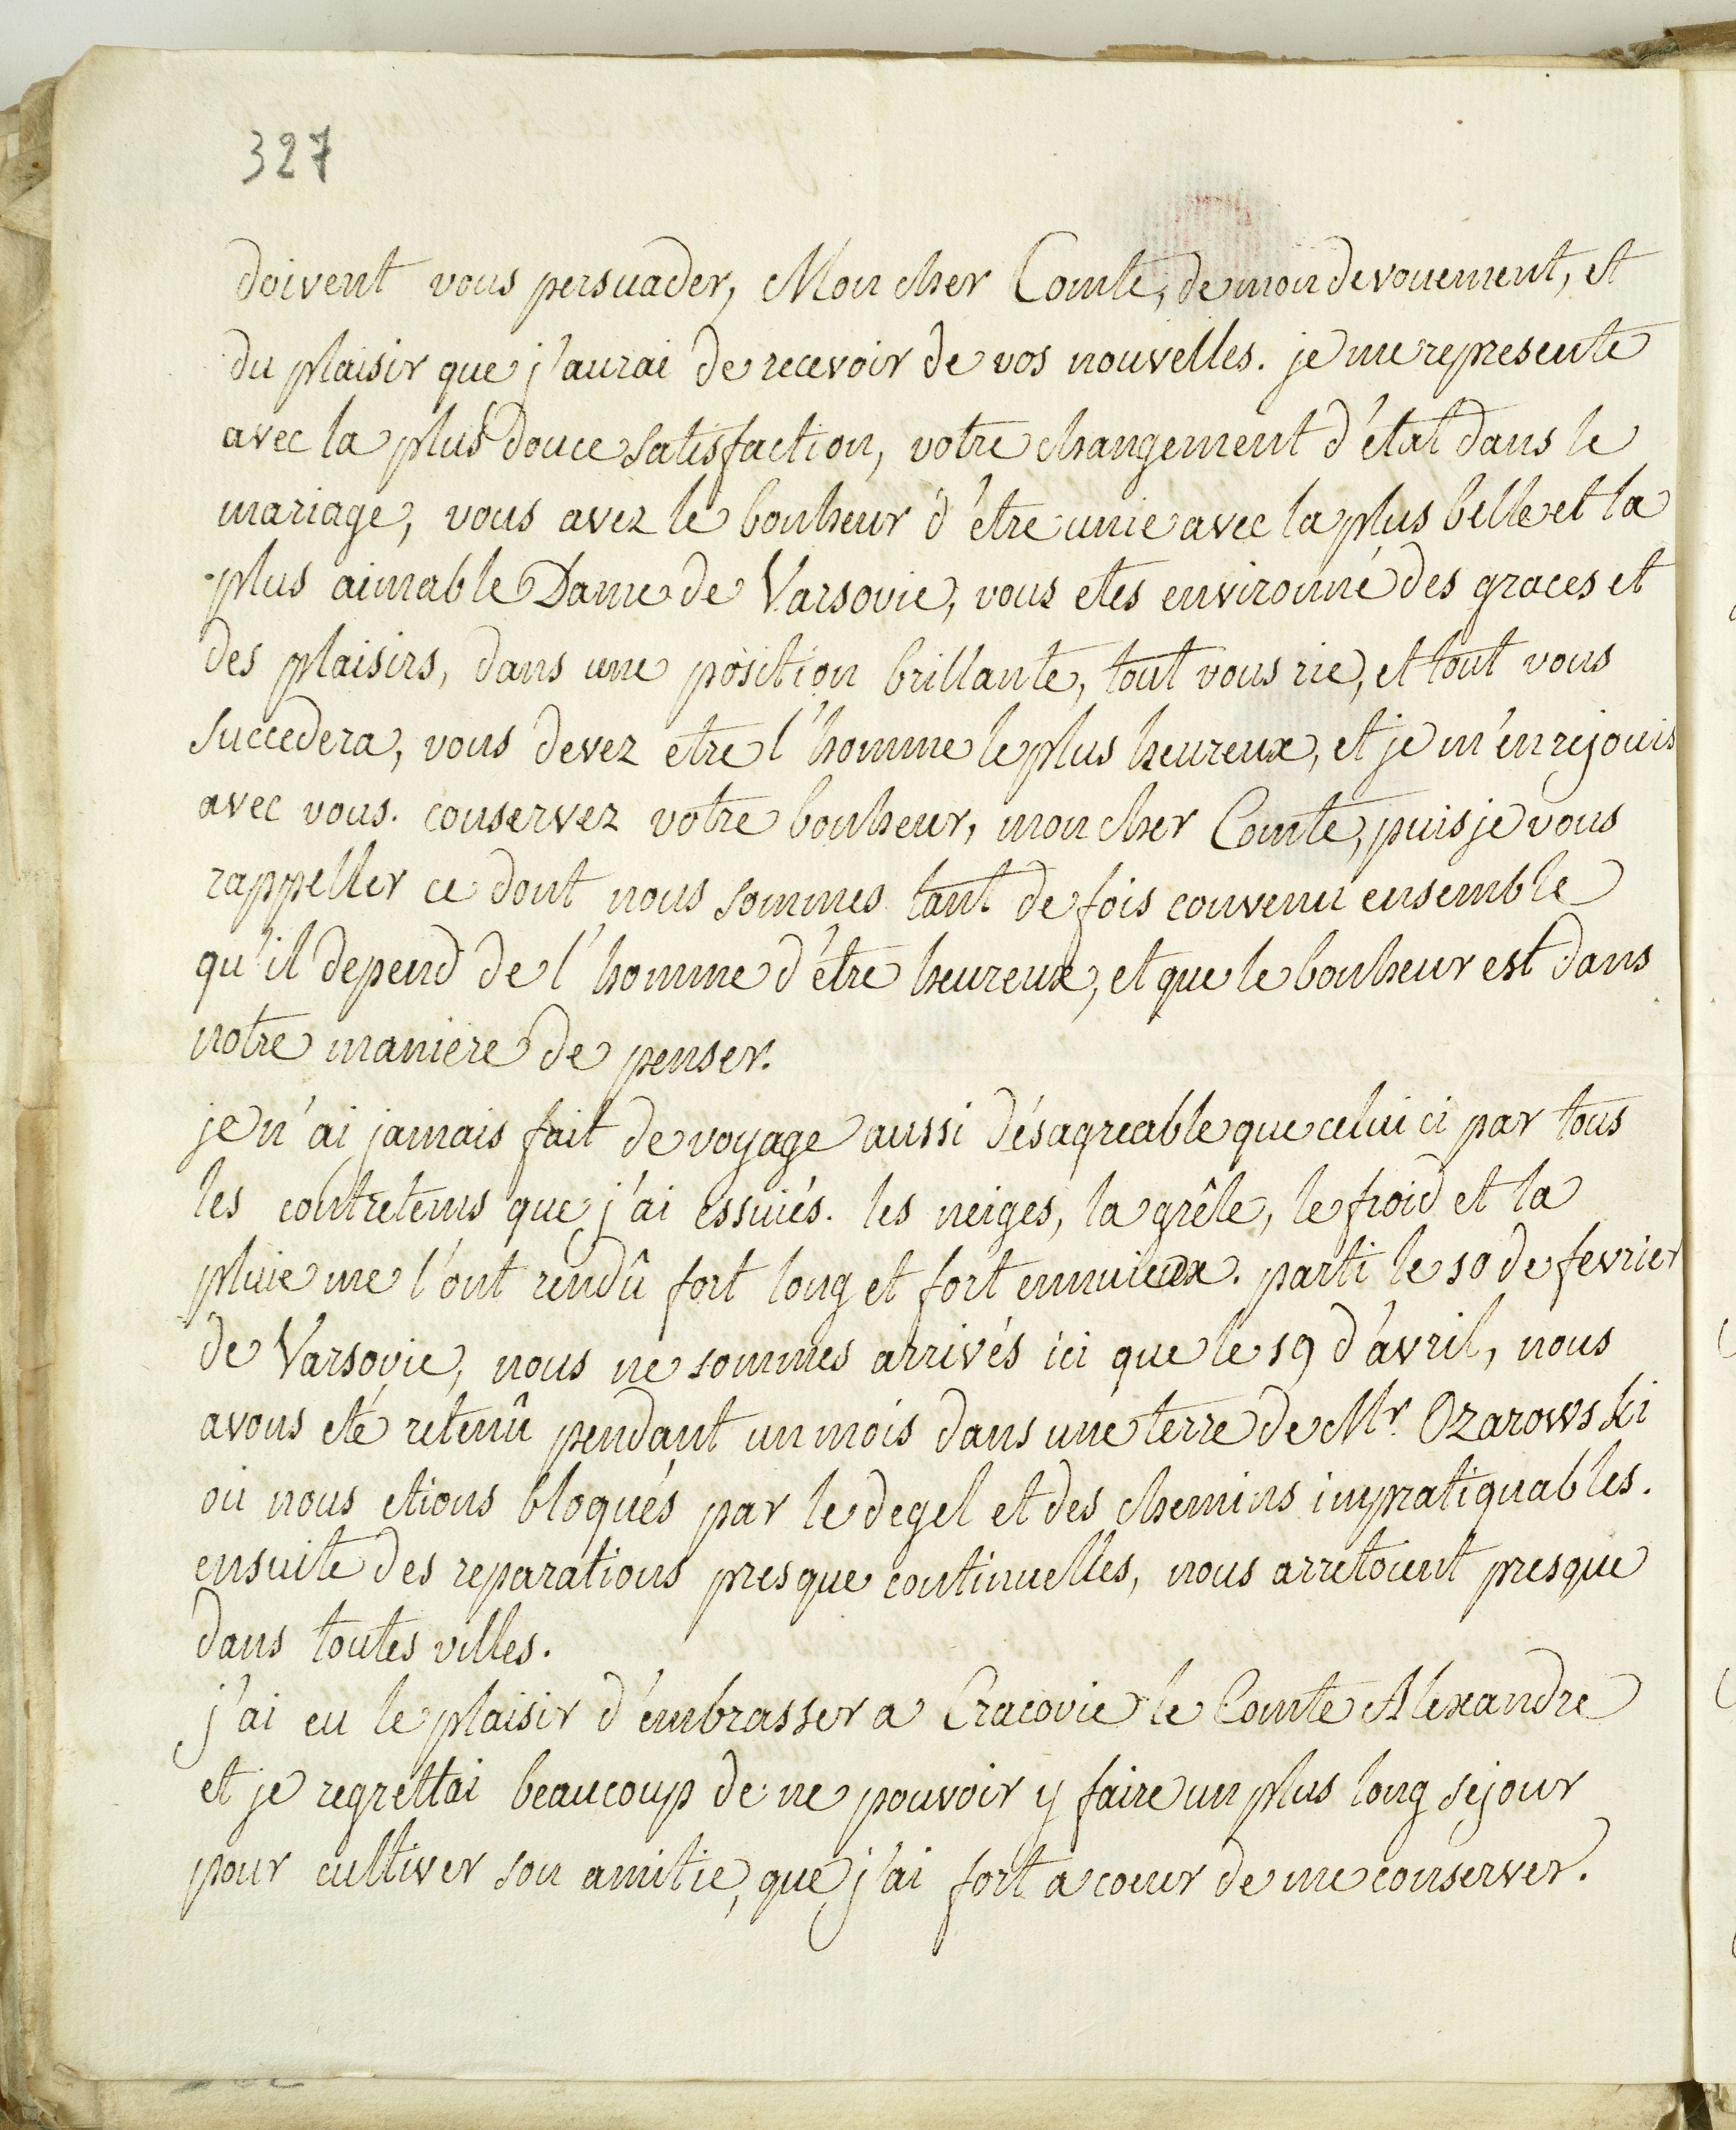 327
doivent vous persuader, Mon cher Comte, de mon devouement, et
du plaisir que j'aurai de recevoir de vos nouvelles. je me represente
avec la plus douce satisfaction, votre changement d'état dans le
mariage, vous avez le bonheur d'être unie avec la plus belle et la
plus aimable Dame de Varsovie, vous etes environné des graces et
des plaisirs, dans une position brillante, tout vous rie, et tout vous
succedera, vous devez etre l'homme le plus heureux, et je m'en rejouis
avec vous. conservez votre bonheur, mon cher Comte, puis je vous
rappeller ce dont nous sommes tant de fois convenu ensemble
qu'il depend de l'homme d'être heureux, et que le bonheur est dans
notre maniere de penser.
je n'ai jamais fait de voyage aussi désagreable que celui ci par tous
les contretems que j'ai essuiés. les neiges, la grêle, le froid et la
pluie me l'ont rendû fort long et fort ennuieux. parti le 10 de fevrier
de Varsovie, nous ne sommes arrivés ici que le 19 d'avril, nous
avons eté retenû pendant un mois dans une terre de Mr. Ozarowski
où nous etions bloqués par le degel et des chemins impratiquables.
ensuite des reparations presque continuelles, nous arretoient presque
dans toutes villes.
j'ai eu le plaisir d'embrasser a Cracovie le Comte Alexandre
et je regrettai beaucoup de ne pouvoir y faire un plus long sejour
pour cultiver son amitie, que j'ai fort a coeur de me conserver.